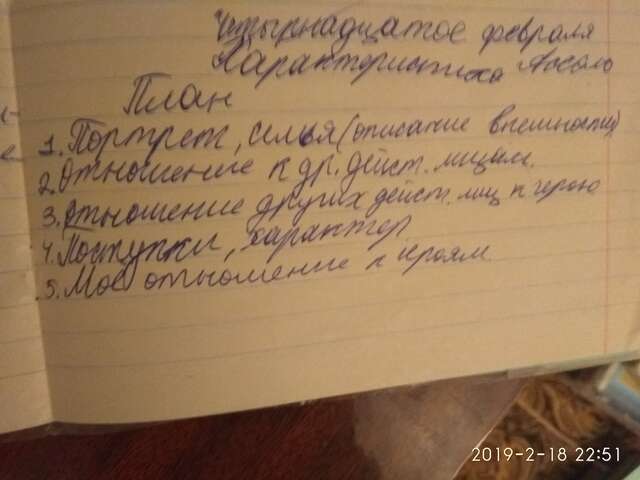 Четырнадцатое февраля
Характеристика Ассоль
План
1. Портрет, семья (описание внешности)
2. Отношение к др. дейст. лицам.
3. Отношение других дейст. лиц к герою
4. Поступки, характер
5. Моё отношение к героям.
2019-2-18 22:51